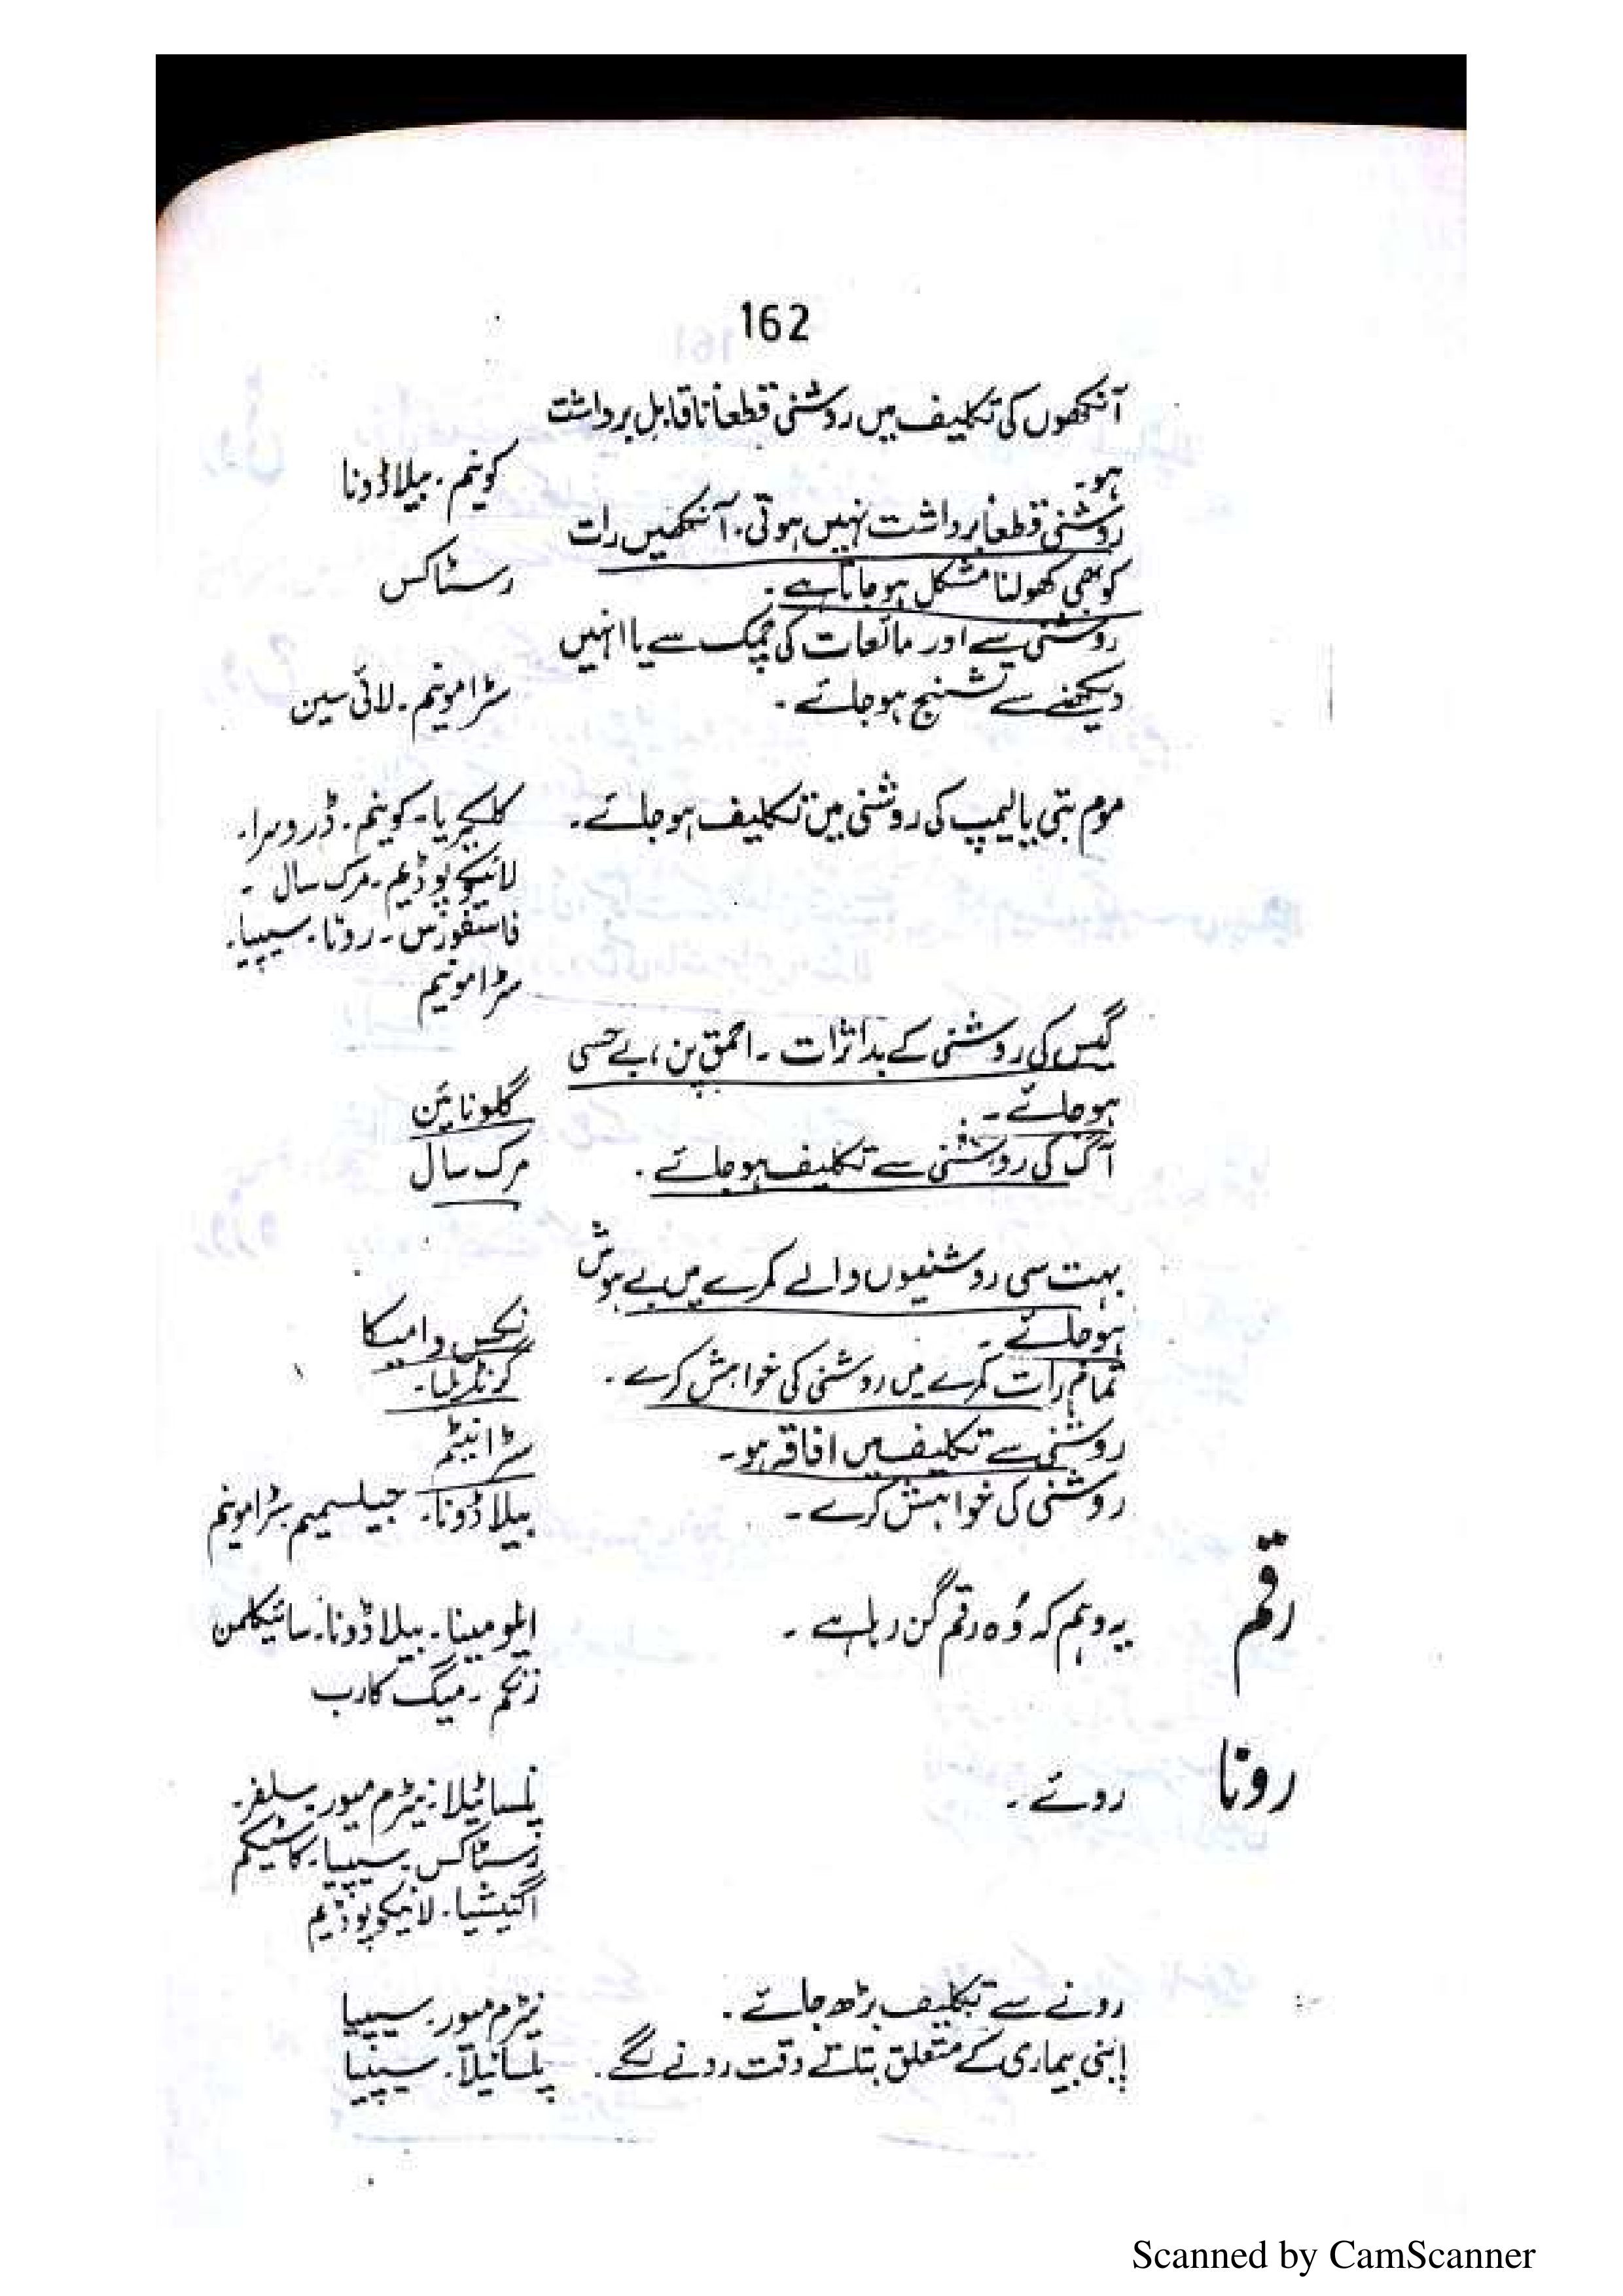 162
آنکھوں کی تکلیف میں روشنی قطعاً ناقابل برداشت
ہو۔ کونیم۔ بیلاڈونا
روشنی قطعاً برداشت نہیں ہوتی۔ آنکھیں رات
کو بھی کھولنا مشکل ہو جاتا ہے۔ رسٹاکس
روشنی سے اور مائعات کی چمک سے یا انہیں
دیکھنے سے تشنج ہو جائے۔ سٹرامونیم۔ لائی سین
موم بتی یا لیمپ کی روشنی میں تکلیف ہو جائے۔ کلکیریا۔ کونیم۔ ڈروسرا۔
لائیکوپوڈیم۔ مرک سال۔
فاسفورس۔ روٹا۔ سیپیا۔
سٹرامونیم
گیس کی روشنی کے بد اثرات۔ احمق پن، بے حسی
ہو جائے۔ گلونائین
آگ کی روشنی سے تکلیف ہو جائے۔ مرک سال
بہت سی روشنیوں والے کمرے میں بے ہوش
ہو جائے۔ نکس وامیکا
تمام رات کمرے میں روشنی کی خواہش کرے۔ گرنڈیلیا۔
روشنی سے تکلیف میں افاقہ ہو۔ سٹرانیٹم
روشنی کی خواہش کرے۔ بیلاڈونا۔ جیلسیمیم۔ سٹرامونیم
رقم یہ وہم کہ وُہ رقم گن رہا ہے۔ ایلومینا۔ بیلاڈونا۔ سائیکلمن
زنکم۔ میگ کارب
رونا روئے۔ پلساٹیلا۔ نیٹرم میور۔ سلفر۔
رسٹاکس۔ سیپیا۔ کاسٹیکم
اگنیشیا۔ لائیکوپوڈیم
رونے سے تکلیف بڑھ جائے۔ نیٹرم میور۔ سیپیا
اپنی بیماری کے متعلق بتاتے وقت رونے لگے۔ پلساٹیلا۔ سیپیا
Scanned by CamScanner